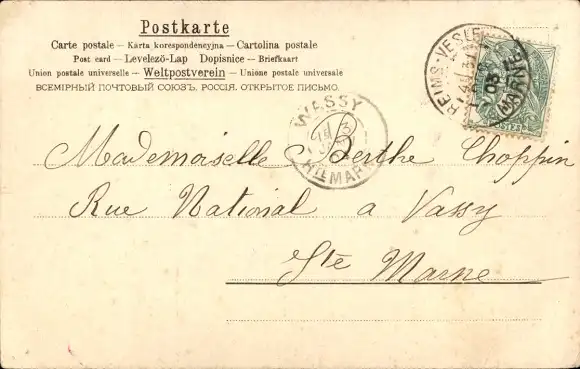 Postkarte
Carte postale — Karta korespondencyjna — Cartolina postale
Post card — Levelező-Lap Dopisnice — Briefkaart
Union postale universelle — Weltpostverein — Unione postale universale
ВСЕМІРНЫЙ ПОЧТОВЫЙ СОЮЗЪ. РОССІЯ. ОТКРЫТОЕ ПИСЬМО.
REIMS-VESLE
03
MARNE
WASSY
HTE MARNE
Mademoiselle Berthe Choppin
Rue National a Vassy
Hte Marne